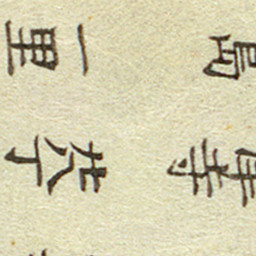 寺 廿八丁
島 一里